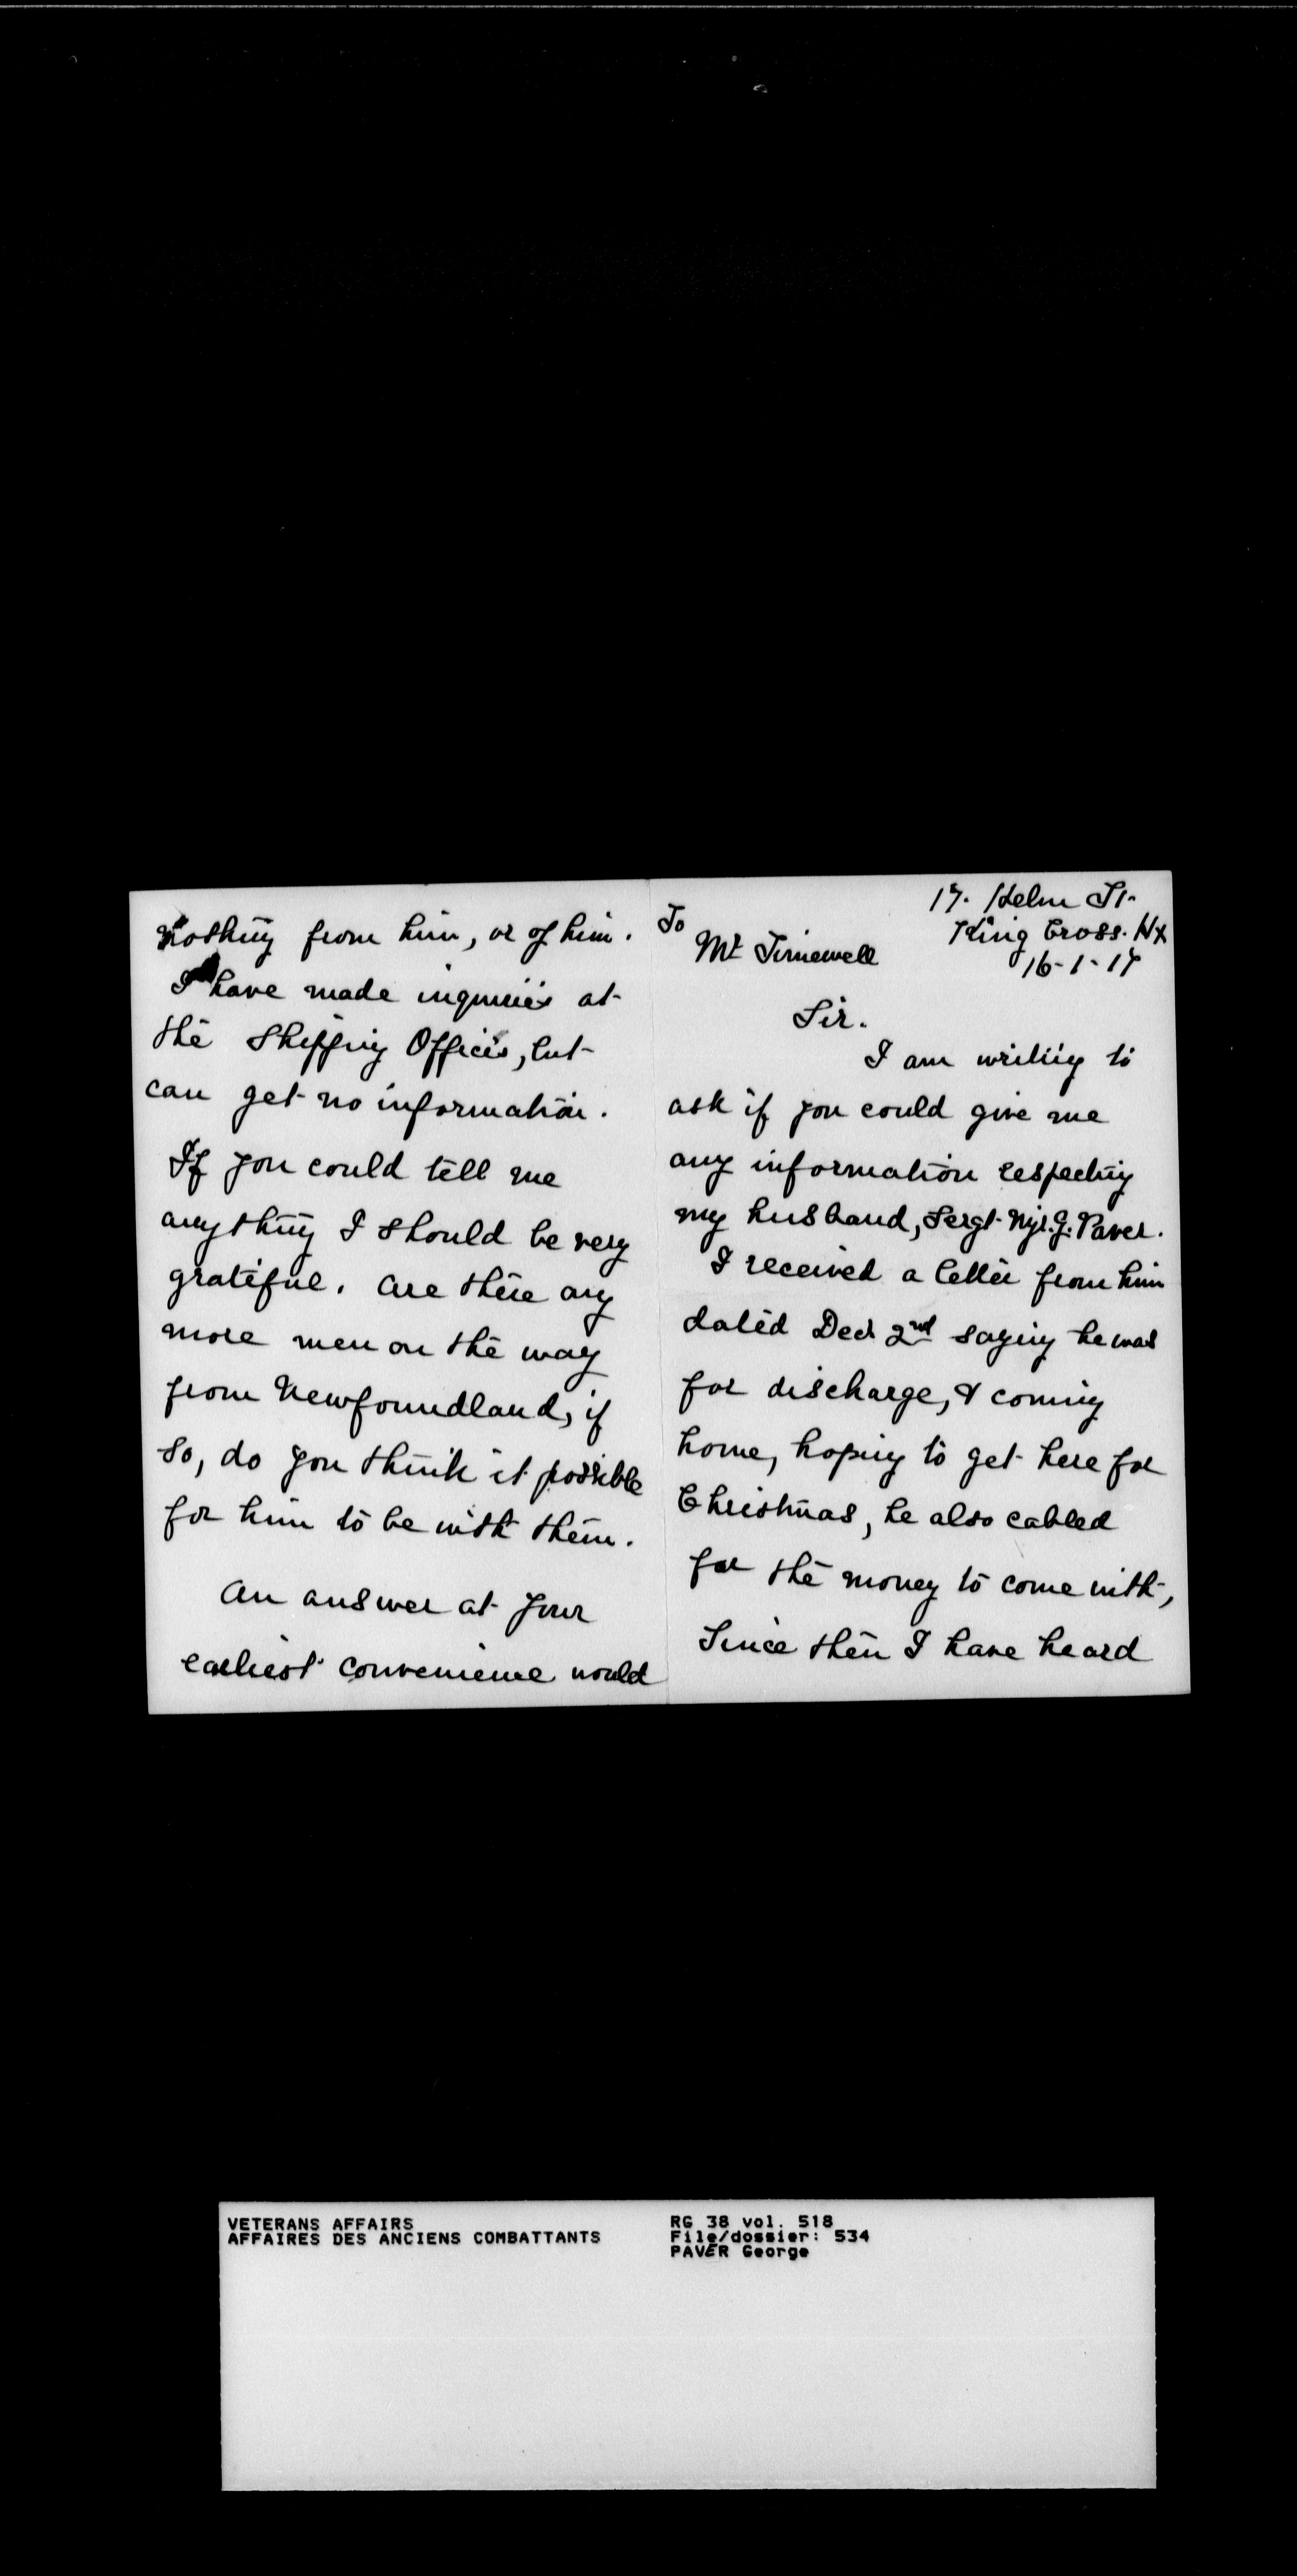 17. Helm St.
King Cross. Hx
16-1-17
To
Mr Timewell
Sir.
I am writing to
ask if you could give me
any information respecting
my husband, Sergt. Mjr. G. Paver.
I received a letter from him
dated Decr 2nd saying he was
for discharge, & coming
home, hoping to get here for
Christmas, he also cabled
for the money to come with,
Since then I have heard
nothing from him, or of him.
I have made inquiries at
the Shipping Offices, but
can get no information.
If you could tell me
anything I should be very
grateful. Are there any
more men on the way
from Newfoundland, if
so, do you think it possible
for him to be with them.
An answer at your
earliest convenience would
VETERANS AFFAIRS
AFFAIRES DES ANCIENS COMBATTANTS
RG 38 vol. 518
File/dossier: 534
PAVER George